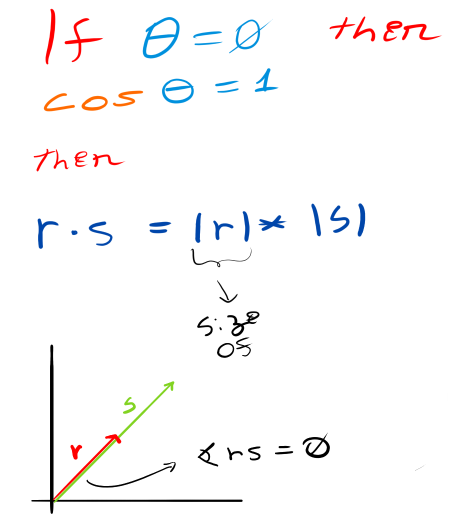 If θ = 0 then
cos θ = 1
then
r · s = |r| * |s|
size
of
s
r
∢ rs = 0